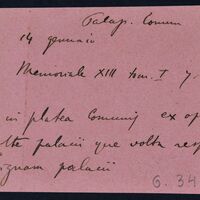 Palap. Comun
14 gennaio
Memoriale XIII tom. I
in platea Communis ex op
palacii que volta resp
palacii
6.34